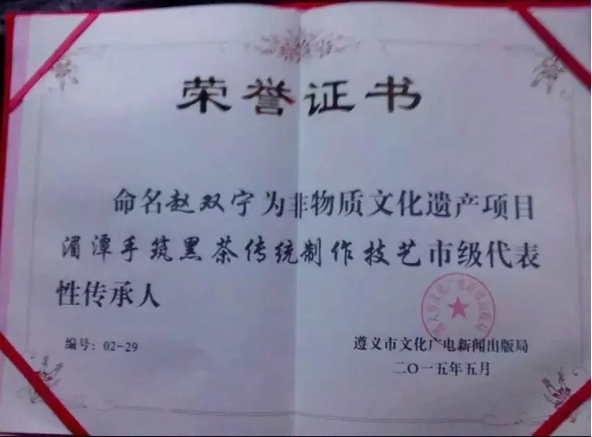 荣誉证书
命名赵双宁为非物质文化遗产项目
湄潭手筑黑茶传统制作技艺市级代表
性传承人
编号：02-29
遵义市文化广电新闻出版局
二〇一五年五月